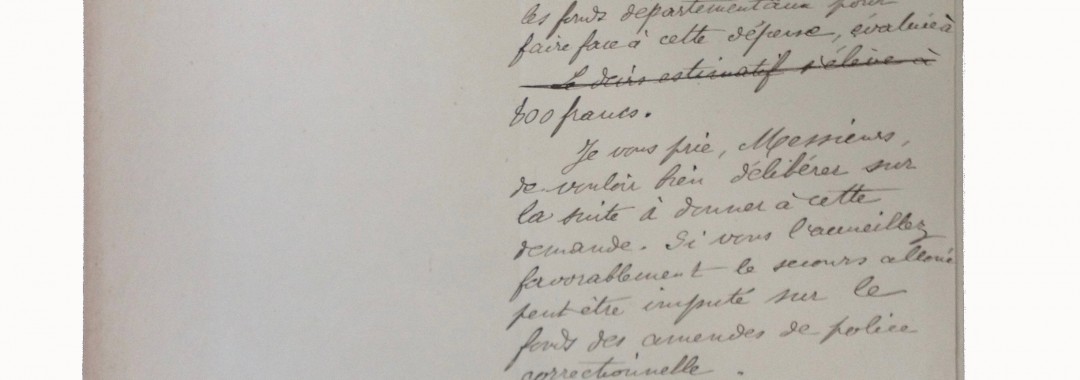 les fonds départementaux pour
faire face à cette dépense, évaluée à
Le devis estimatif s'élève à
800 francs.
Je vous prie, Messieurs,
de vouloir bien délibérer sur
la suite à donner à cette
demande. Si vous l'accueillez
favorablement le secours alloué
peut être imputé sur le
fonds des amendes de police
correctionnelle.